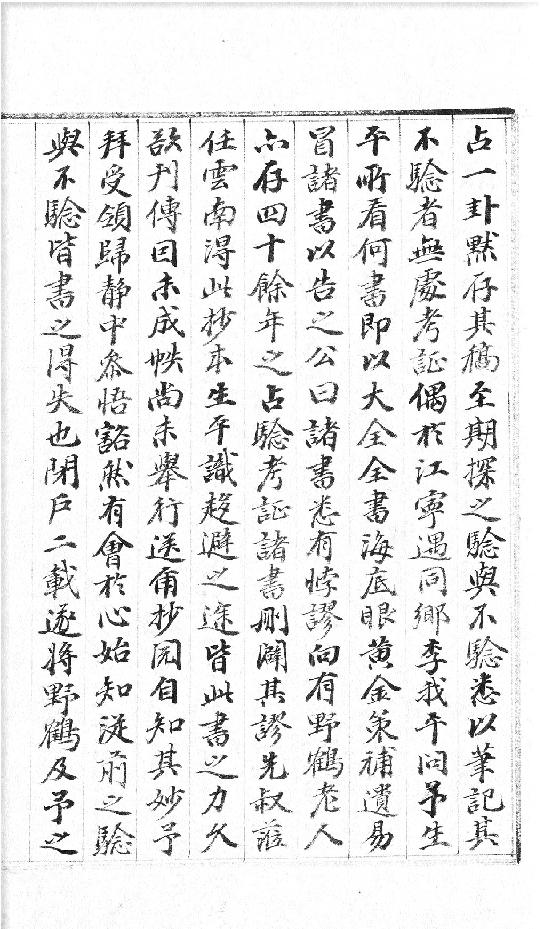 占一卦默存其稿至期探之驗與不驗悉以筆記其
不驗者無處考証偶於江寧遇同鄉李我平问予生
平所看何書即以大全全書海底眼黄金策補遺易
冒諸書以告之公曰諸書悉有悖謬向有野鶴老人
亦存四十餘年之占驗考証諸書刪闢其謬先叔蒞
任雲南淂此抄本生平識趍避之途皆此書之力久
欲刊傳因未成帙尚未舉行送甭抄阅自知其妙予
拜受領歸静中叅悟豁然有會於心始知泛前之驗
與不驗皆書之淂失也閉户二載遂将野鶴及予之